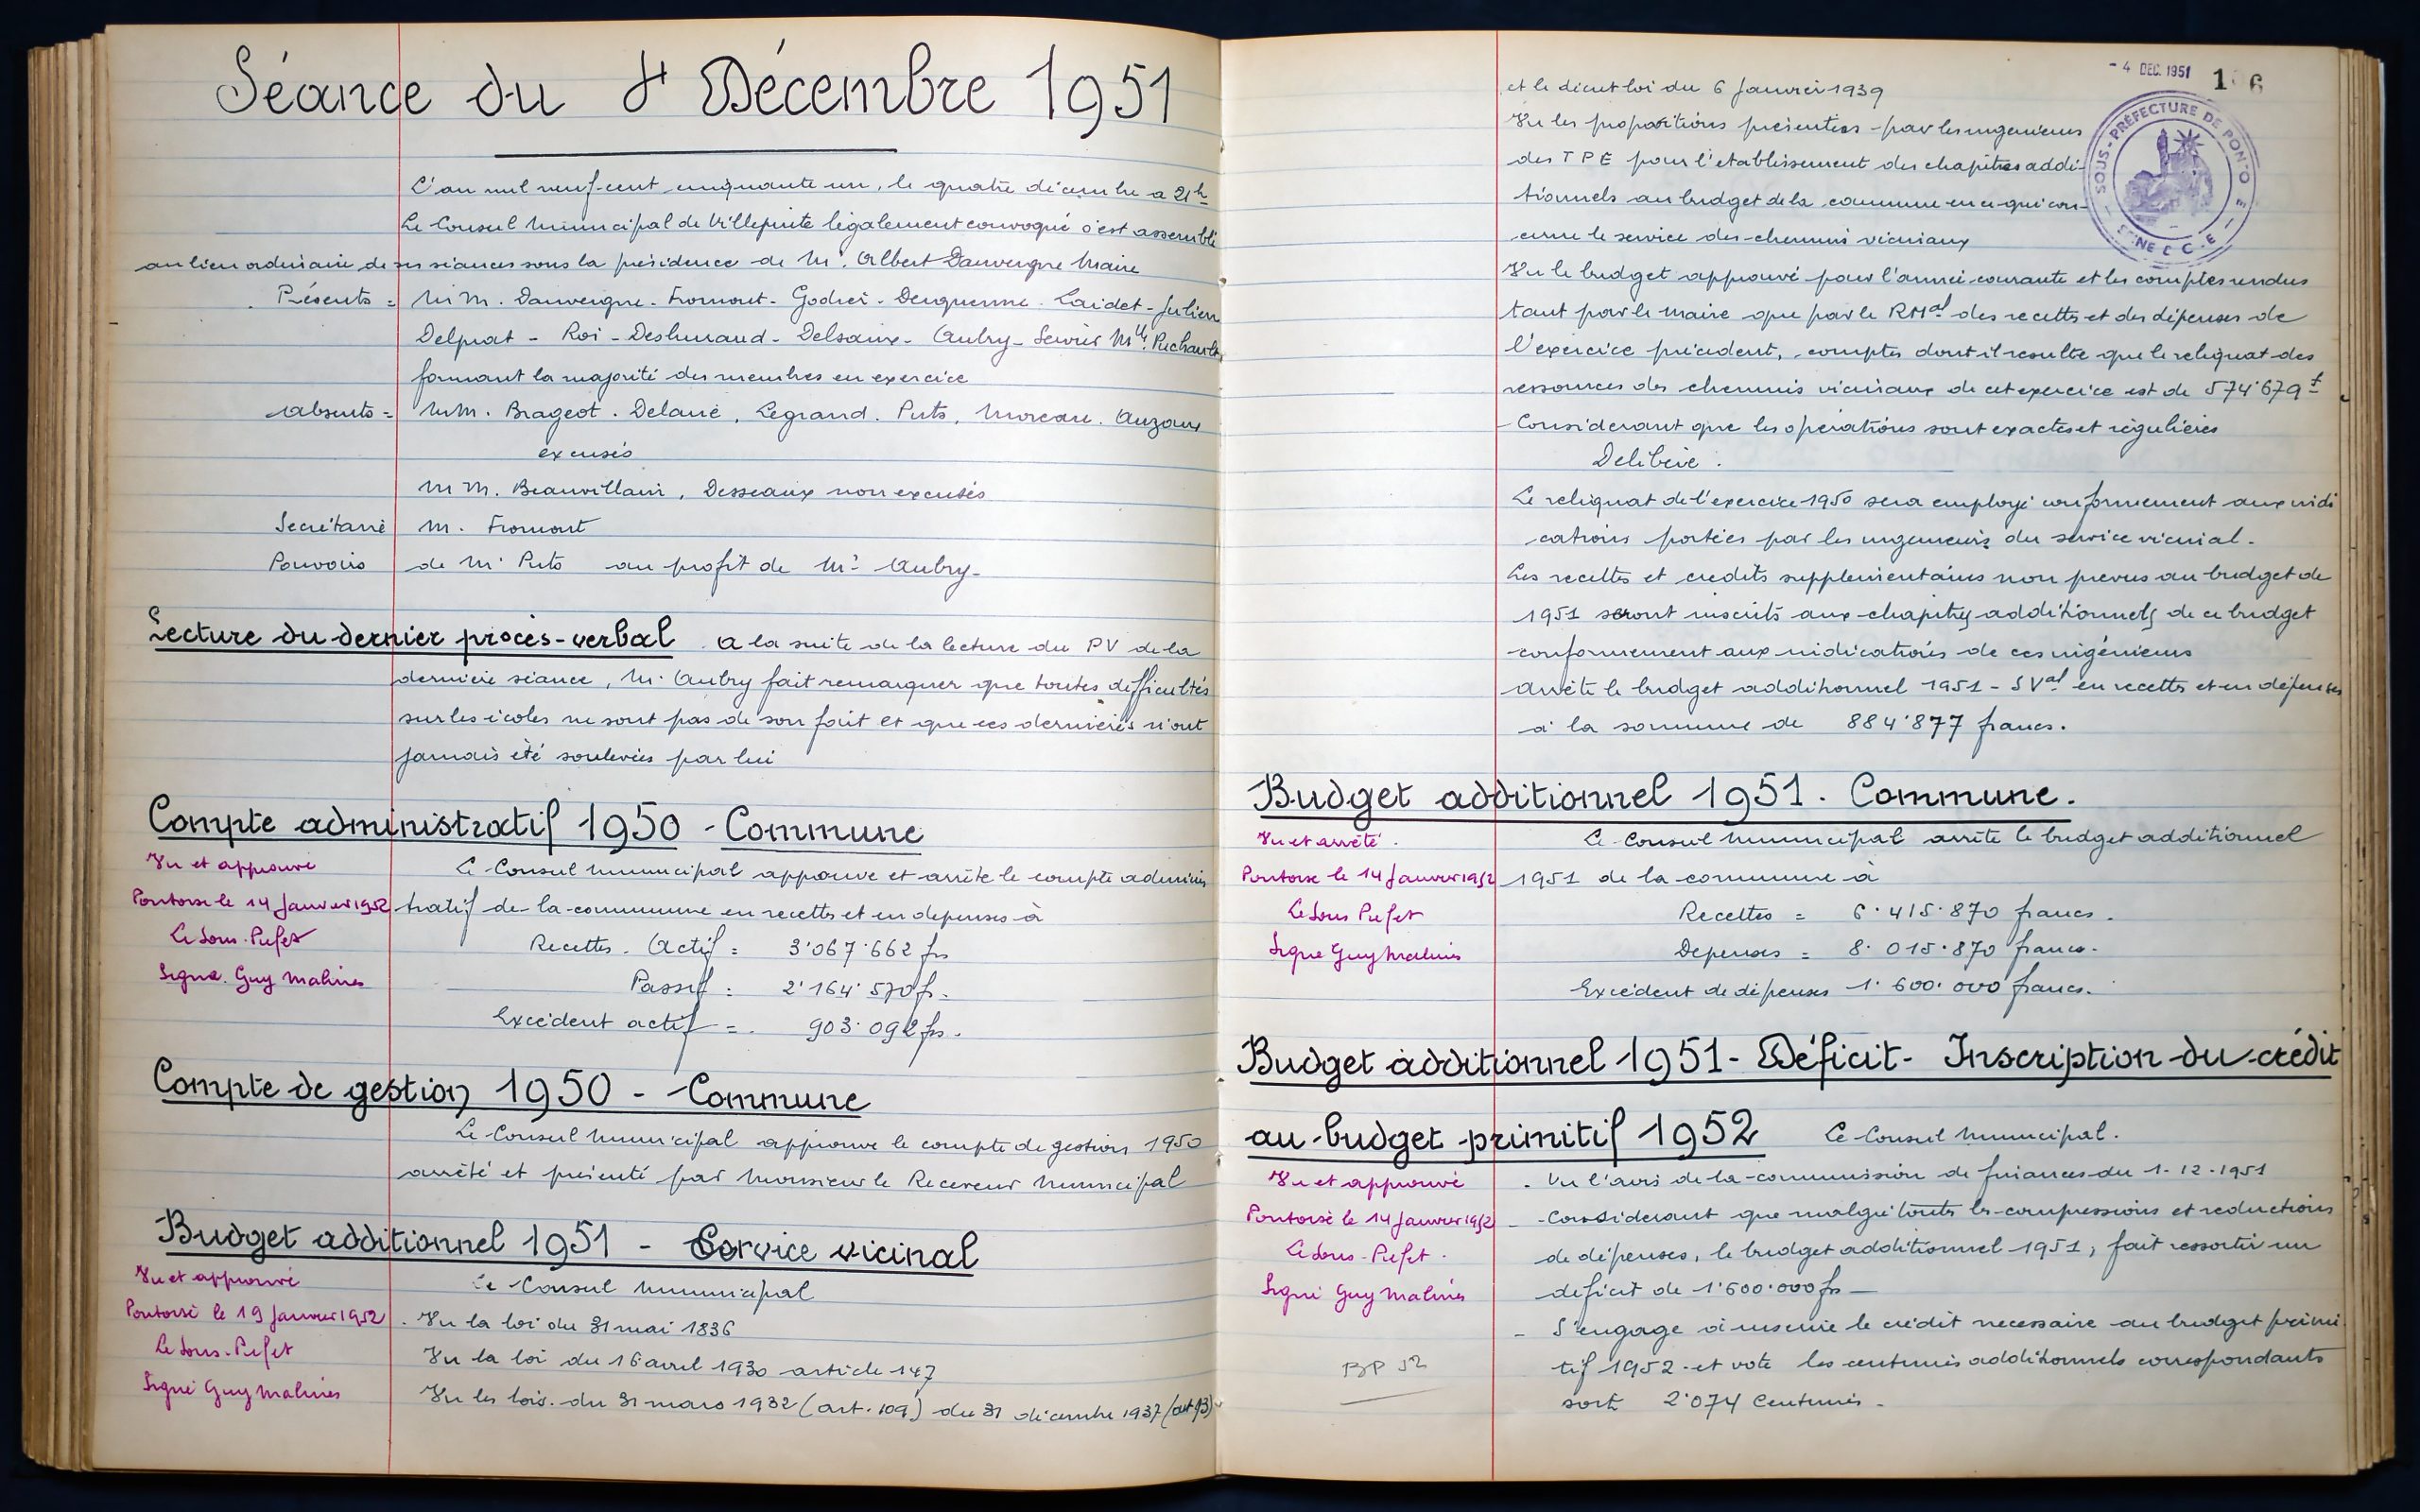 Séance du 4 Décembre 1951
L'an mil neuf cent cinquante un, le quatre décembre a 21h
Le Conseil Municipal de Villepinte légalement convoqué s'est assemblé
au lieu ordinaire de ses séances sous la présidence de Mr. Albert Dauvergne Maire
Présents = M.M. Dauvergne - Fromont - Godier - Denquenne - Laidet - Julien
Delprat - Roi - Deshuraud - Delsaux - Aubry - Mlle
formant la majorité des membres en exercice
Absents = M.M. Brageot. Delarié, Legrand. Puts, Moreau. Auzoux
excusés
M.M. Beauvillain, Desseaux non excusés
Secrétaire M. Fromont
Pouvoirs de Mr Puts au profit de Mr Aubry-
Lecture du dernier procès-verbal A la suite de la lecture du PV de la
dernière séance, Mr Aubry fait remarquer que toutes difficultés
sur les écoles ne sont pas de son fait et que ces dernières n'ont
jamais été soulevées par lui
Compte administratif 1950 - Commune
Vu et approuvé
Pontoise le 14 Janvier 1952
Le Sous-Préfet
Signé. Guy Malines
Le Conseil Municipal approuve et arrête le compte adminis
tratif de la commune en recettes et en dépenses à
Recettes. Actif = 3'067'662 frs
Passif = 2'164'570 fr.
Excédent actif = 903.092 frs.
Compte de gestion 1950 - Commune
Le Conseil Municipal approuve le compte de gestion 1950
arrêté et présenté par Monsieur le Receveur Municipal
Budget additionnel 1951 - Service vicinal
Vu et approuvé
Pontoise le 19 Janvier 1952
Le Sous-Préfet
Signé Guy Malines
Le Conseil Municipal
. Vu la loi du 31 mai 1836
Vu la loi du 16 avril 1930 article 147
Vu les lois. du 31 mars 1932 (art. 109) du 31 décembre 1937 (art 93)
- 4 DEC. 1951
1 6
SOUS-PRÉFECTURE DE PONTO E
et le décret loi du 6 Janvier 1939
Vu les propositions présentées par les ingénieurs
des T P E pour l'établissement des chapitres addi-
tionnels au budget de la commune en ce qui con-
cerne le service des chemins vicinaux
Vu le budget approuvé pour l'année courante et les comptes rendus
tant par le maire que par le RMal des recettes et des dépenses de
l'exercice précédent, comptes dont il résulte que le reliquat des
ressources des chemins vicinaux de cet exercice est de 574'679 f
- Considerant que les opérations sont exactes et régulières
Délibère.
Le reliquat de l'exercice 1950 sera employé conformément aux indi
cations portées par les ingénieurs du service vicinal.
Les recettes et credits supplémentaires non prévus au budget de
1951 seront inscrits aux chapitres additionnels de ce budget
conformément aux indications de ces ingénieurs
arrête le budget additionnel 1951 - SVal en recettes et en dépenses
à la somme de 884'877 francs.
Budget additionnel 1951. Commune.
Vu et arrêté.
Pontoise le 14 Janvier 1952
Le Sous Préfet
Signé Guy Malines
Le Conseil Municipal arrête le budget additionnel
1951 de la commune à
Recettes = 6.415.870 francs.
Dépenses = 8.015.870 francs.
Excédent de dépenses 1.600.000 francs.
Budget additionnel 1951 - Déficit - Inscription du crédit
au budget primitif 1952 Le Conseil Municipal.
Vu et approuvé
Pontoise le 14 Janvier 1952
Le Sous-Préfet.
Signé Guy Malines
BP 52
- Vu l'avis de la commission de finances du 1-12-1951
- Considérant que malgré toutes les compressions et reductions
de dépenses, le budget additionnel 1951, fait ressortir un
déficit de 1'600.000 frs -
- S'engage à inscrire le crédit nécessaire au budget primi
tif 1952 et vote les centimes additionnels correspondants
soit 2'074 Centimes.